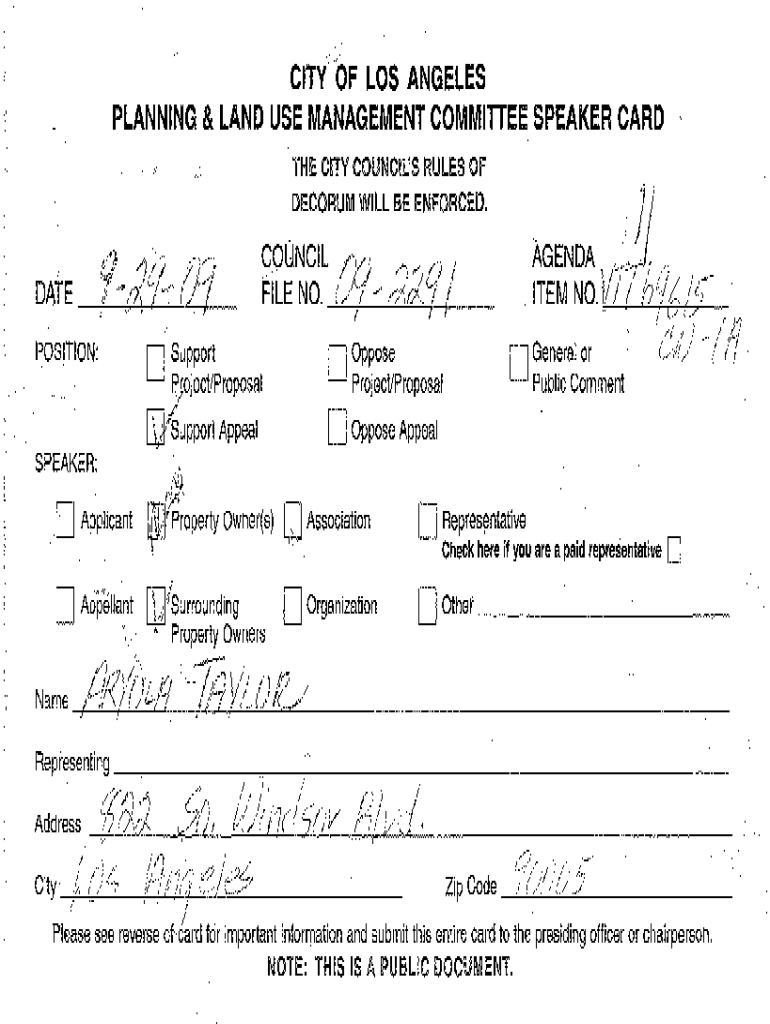 CITY OF LOS ANGELES
PLANNING & LAND USE MANAGEMENT COMMITTEE SPEAKER CARD
THE CITY COUNCIL'S RULES OF
DECORUM WILL BE ENFORCED.
11
DATE 9-29-09 COUNCIL FILE NO. 09-2291 AGENDA ITEM NO. VTT 69615
CN-1A
POSITION: Support Project/Proposal Oppose Project/Proposal General or Public Comment
Support Appeal Oppose Appeal
SPEAKER:
Applicant Property Owner(s) Association Representative
Check here if you are a paid representative
Appellant Surrounding Property Owners Organization Other
Name TAYLOR
Representing
Address 822 So. Windsor Blvd.
City Los Angeles Zip Code 90005
Please see reverse of card for important information and submit this entire card to the presiding officer or chairperson.
NOTE: THIS IS A PUBLIC DOCUMENT.